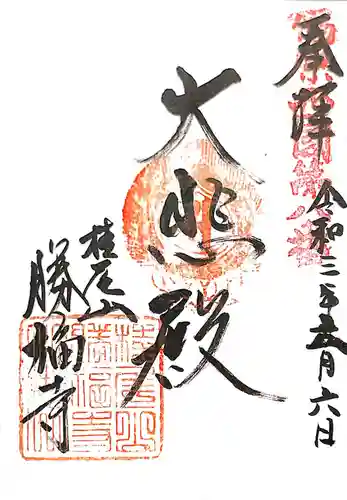 奉拝
令和三年五月六日
大悲殿
桂尾山
勝福寺